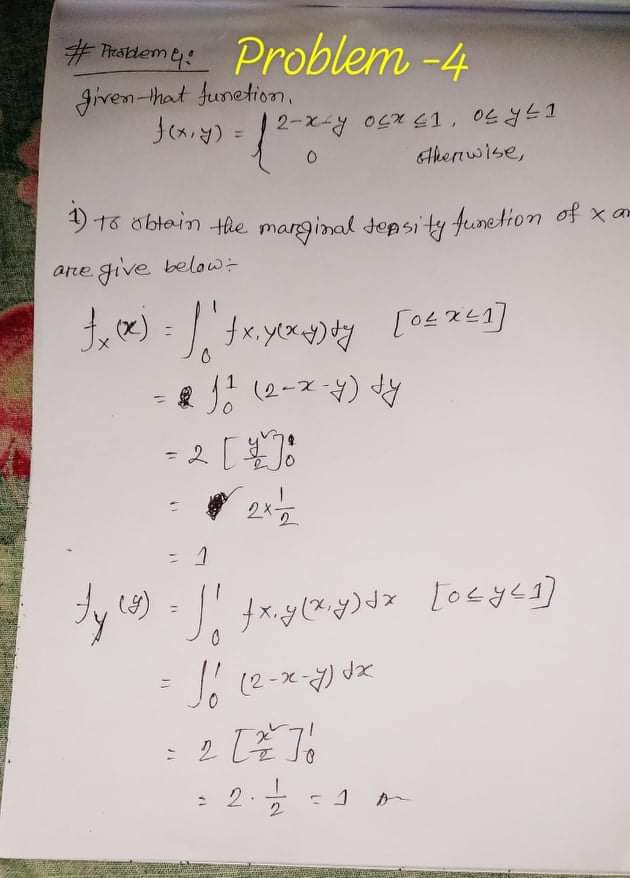 # Problem 4: Problem -4
given that function,
f(x,y) = { 2-x-y 0≤x≤1, 0≤y≤1
0 otherwise,
i) To obtain the marginal density function of x an
are give below:-
fx(x) = ∫₀¹ fx,y(x,y)dy [0≤x≤1]
= ∫₀¹ (2-x-y) dy
= 2 [y²/2]₀¹
= 2×1/2
= 1
fy(y) = ∫₀¹ fx,y(x,y)dx [0≤y≤1]
= ∫₀¹ (2-x-y) dx
= 2 [x²/2]₀¹
= 2·1/2 = 1